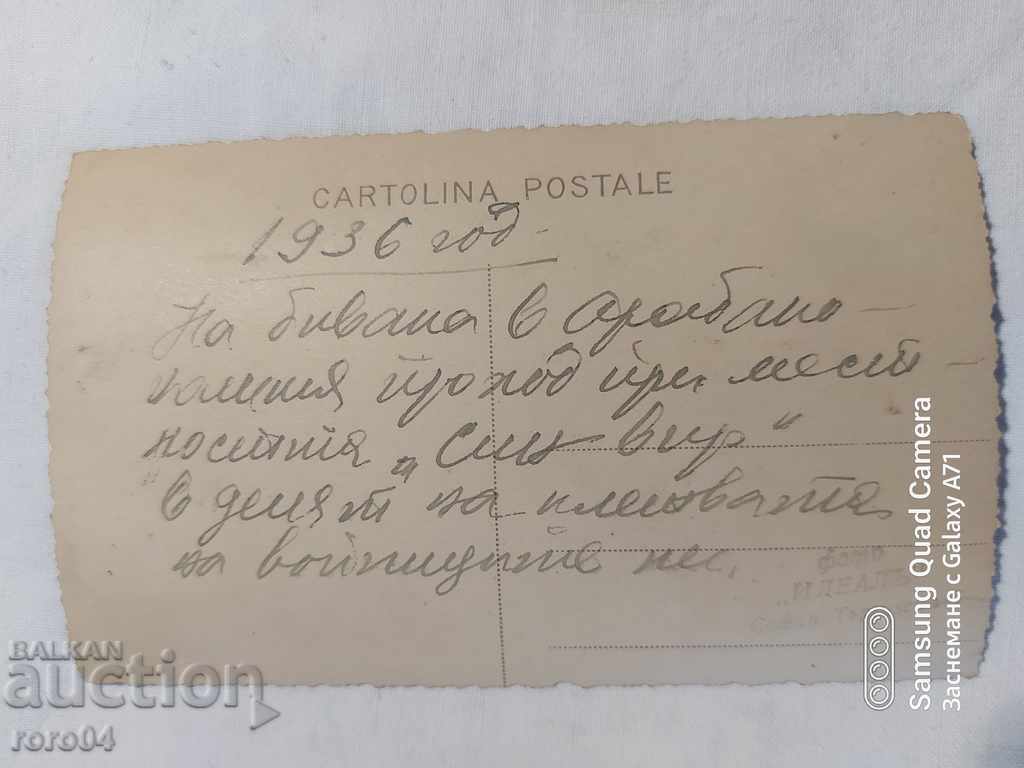 CARTOLINA POSTALE
1936 год.
На бивака в Арабако-
накския проход при мест-
ността „Син вир"
в деня на клетвата
на войниците
фото
"ИДЕАЛ"
BALKAN
auction
roro04
Samsung Quad Camera
Заснемане с Galaxy A71